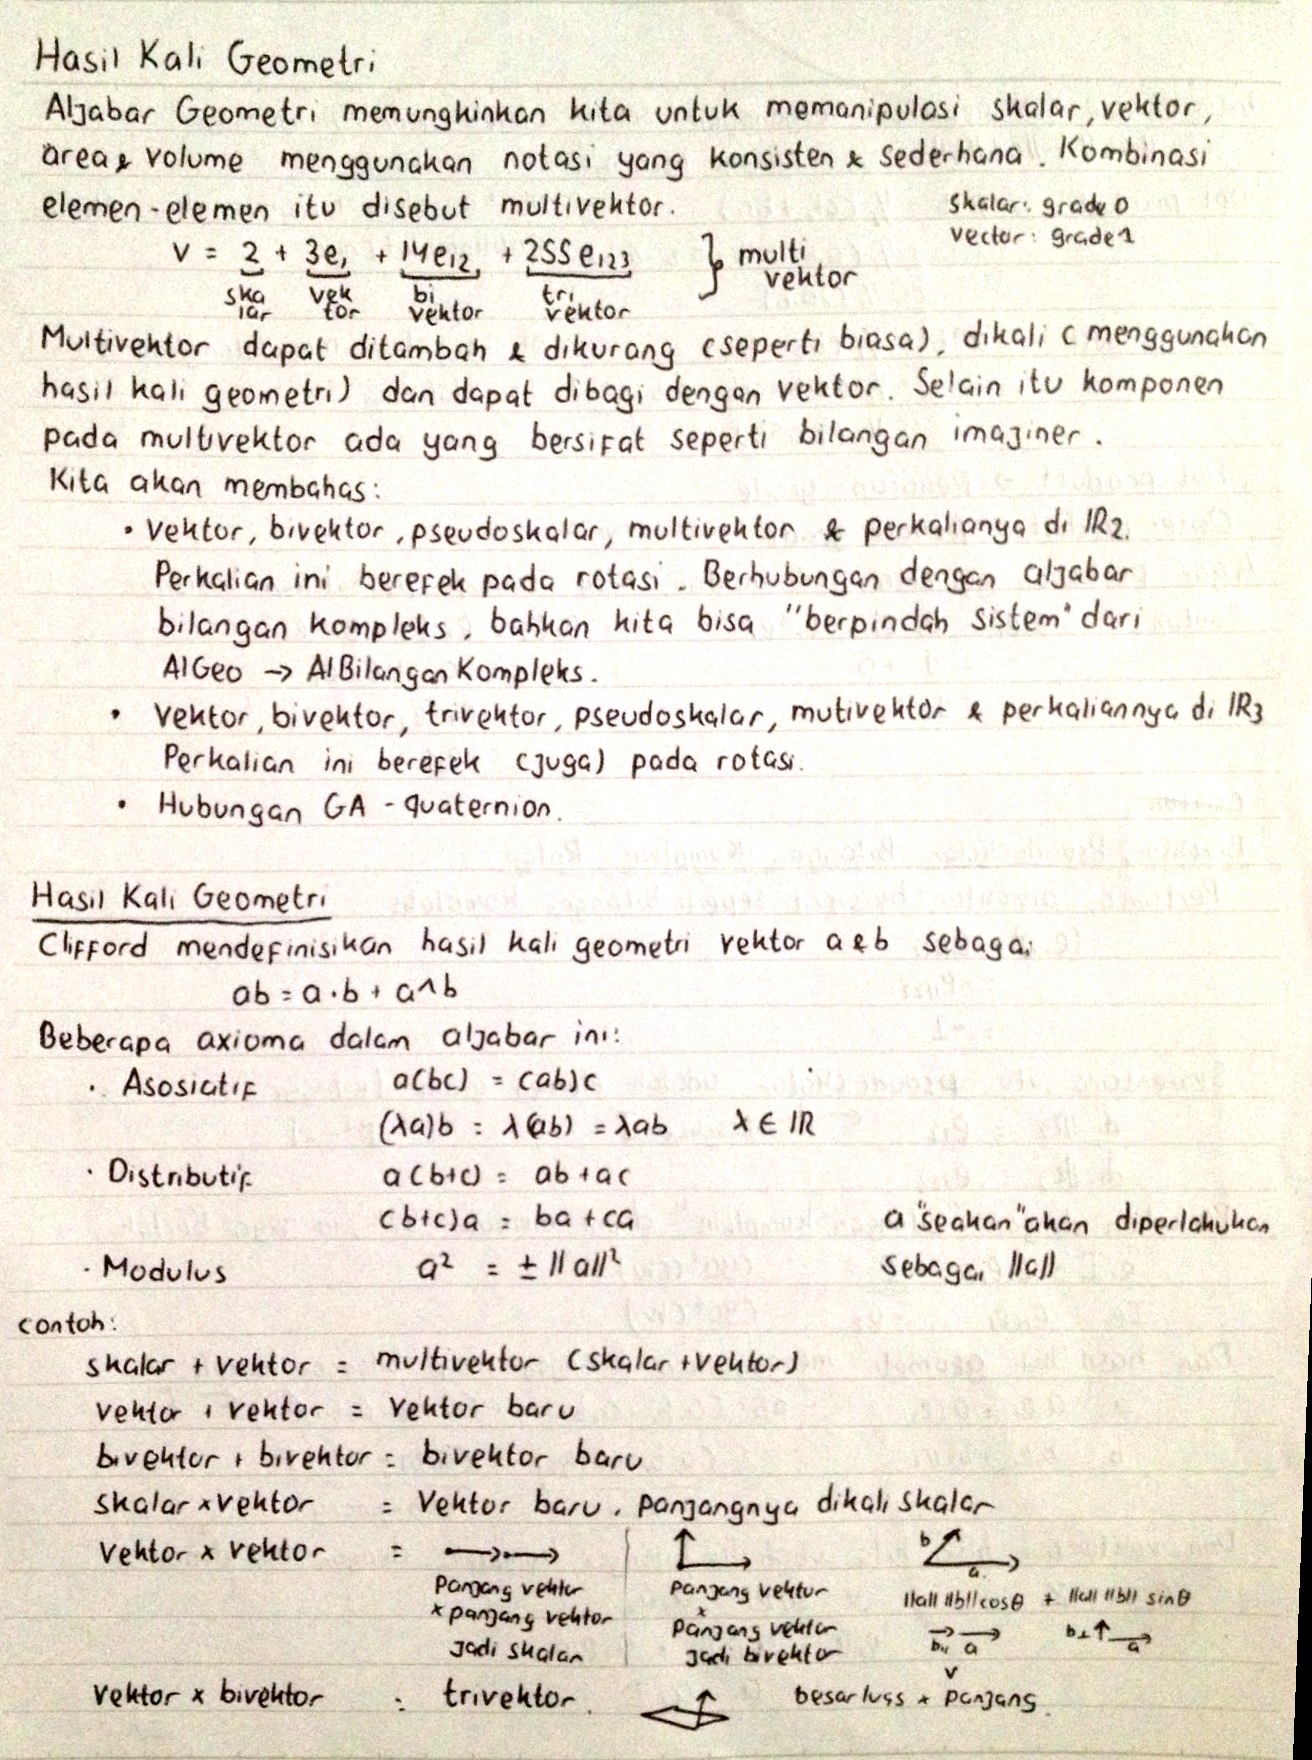 Hasil Kali Geometri
Aljabar Geometri memungkinkan kita untuk memanipulasi skalar, vektor,
area & volume menggunakan notasi yang konsisten & sederhana. Kombinasi
elemen-elemen itu disebut multivektor.
skalar: grade 0
vector: grade 1
v = 2 + 3e₁ + 14e₁₂ + 255e₁₂₃ } multi
vektor
ska vek bi tri
lar tor vektor vektor
Multivektor dapat ditambah & dikurang (seperti biasa), dikali (menggunakan
hasil kali geometri) dan dapat dibagi dengan vektor. Selain itu komponen
pada multivektor ada yang bersifat seperti bilangan imajiner.
Kita akan membahas:
• Vektor, bivektor, pseudoskalar, multivektor & perkalianya di IR₂.
Perkalian ini berefek pada rotasi. Berhubungan dengan aljabar
bilangan kompleks, bahkan kita bisa "berpindah sistem" dari
AlGeo → AlBilangan Kompleks.
• Vektor, bivektor, trivektor, pseudoskalar, mutivektor & perkaliannya di IR₃
Perkalian ini berefek (juga) pada rotasi.
• Hubungan GA - quaternion.
Hasil Kali Geometri
Clifford mendefinisikan hasil kali geometri vektor a & b sebagai
ab = a·b + a^b
Beberapa axioma dalam aljabar ini:
· Asosiatif a(bc) = (ab)c
(λa)b = λ(ab) = λab λ ∈ IR
· Distributif a(b+c) = ab + ac
(b+c)a = ba + ca a "seakan" akan diperlakukan
· Modulus a² = ± ||a||² sebagai ||a||
contoh:
skalar + vektor = multivektor (skalar + vektor)
vektor + vektor = vektor baru
bivektor + bivektor = bivektor baru
skalar x vektor = Vektor baru. panjangnya dikali skalar
vektor x vektor = b a
panjang vektor panjang vektor ||a|| ||b|| cosθ + ||a|| ||b|| sinθ
x panjang vektor x panjang vektor b∥ a b⊥ a
jadi skalar jadi bivektor
vektor x bivektor = trivektor. besar luas x panjang.